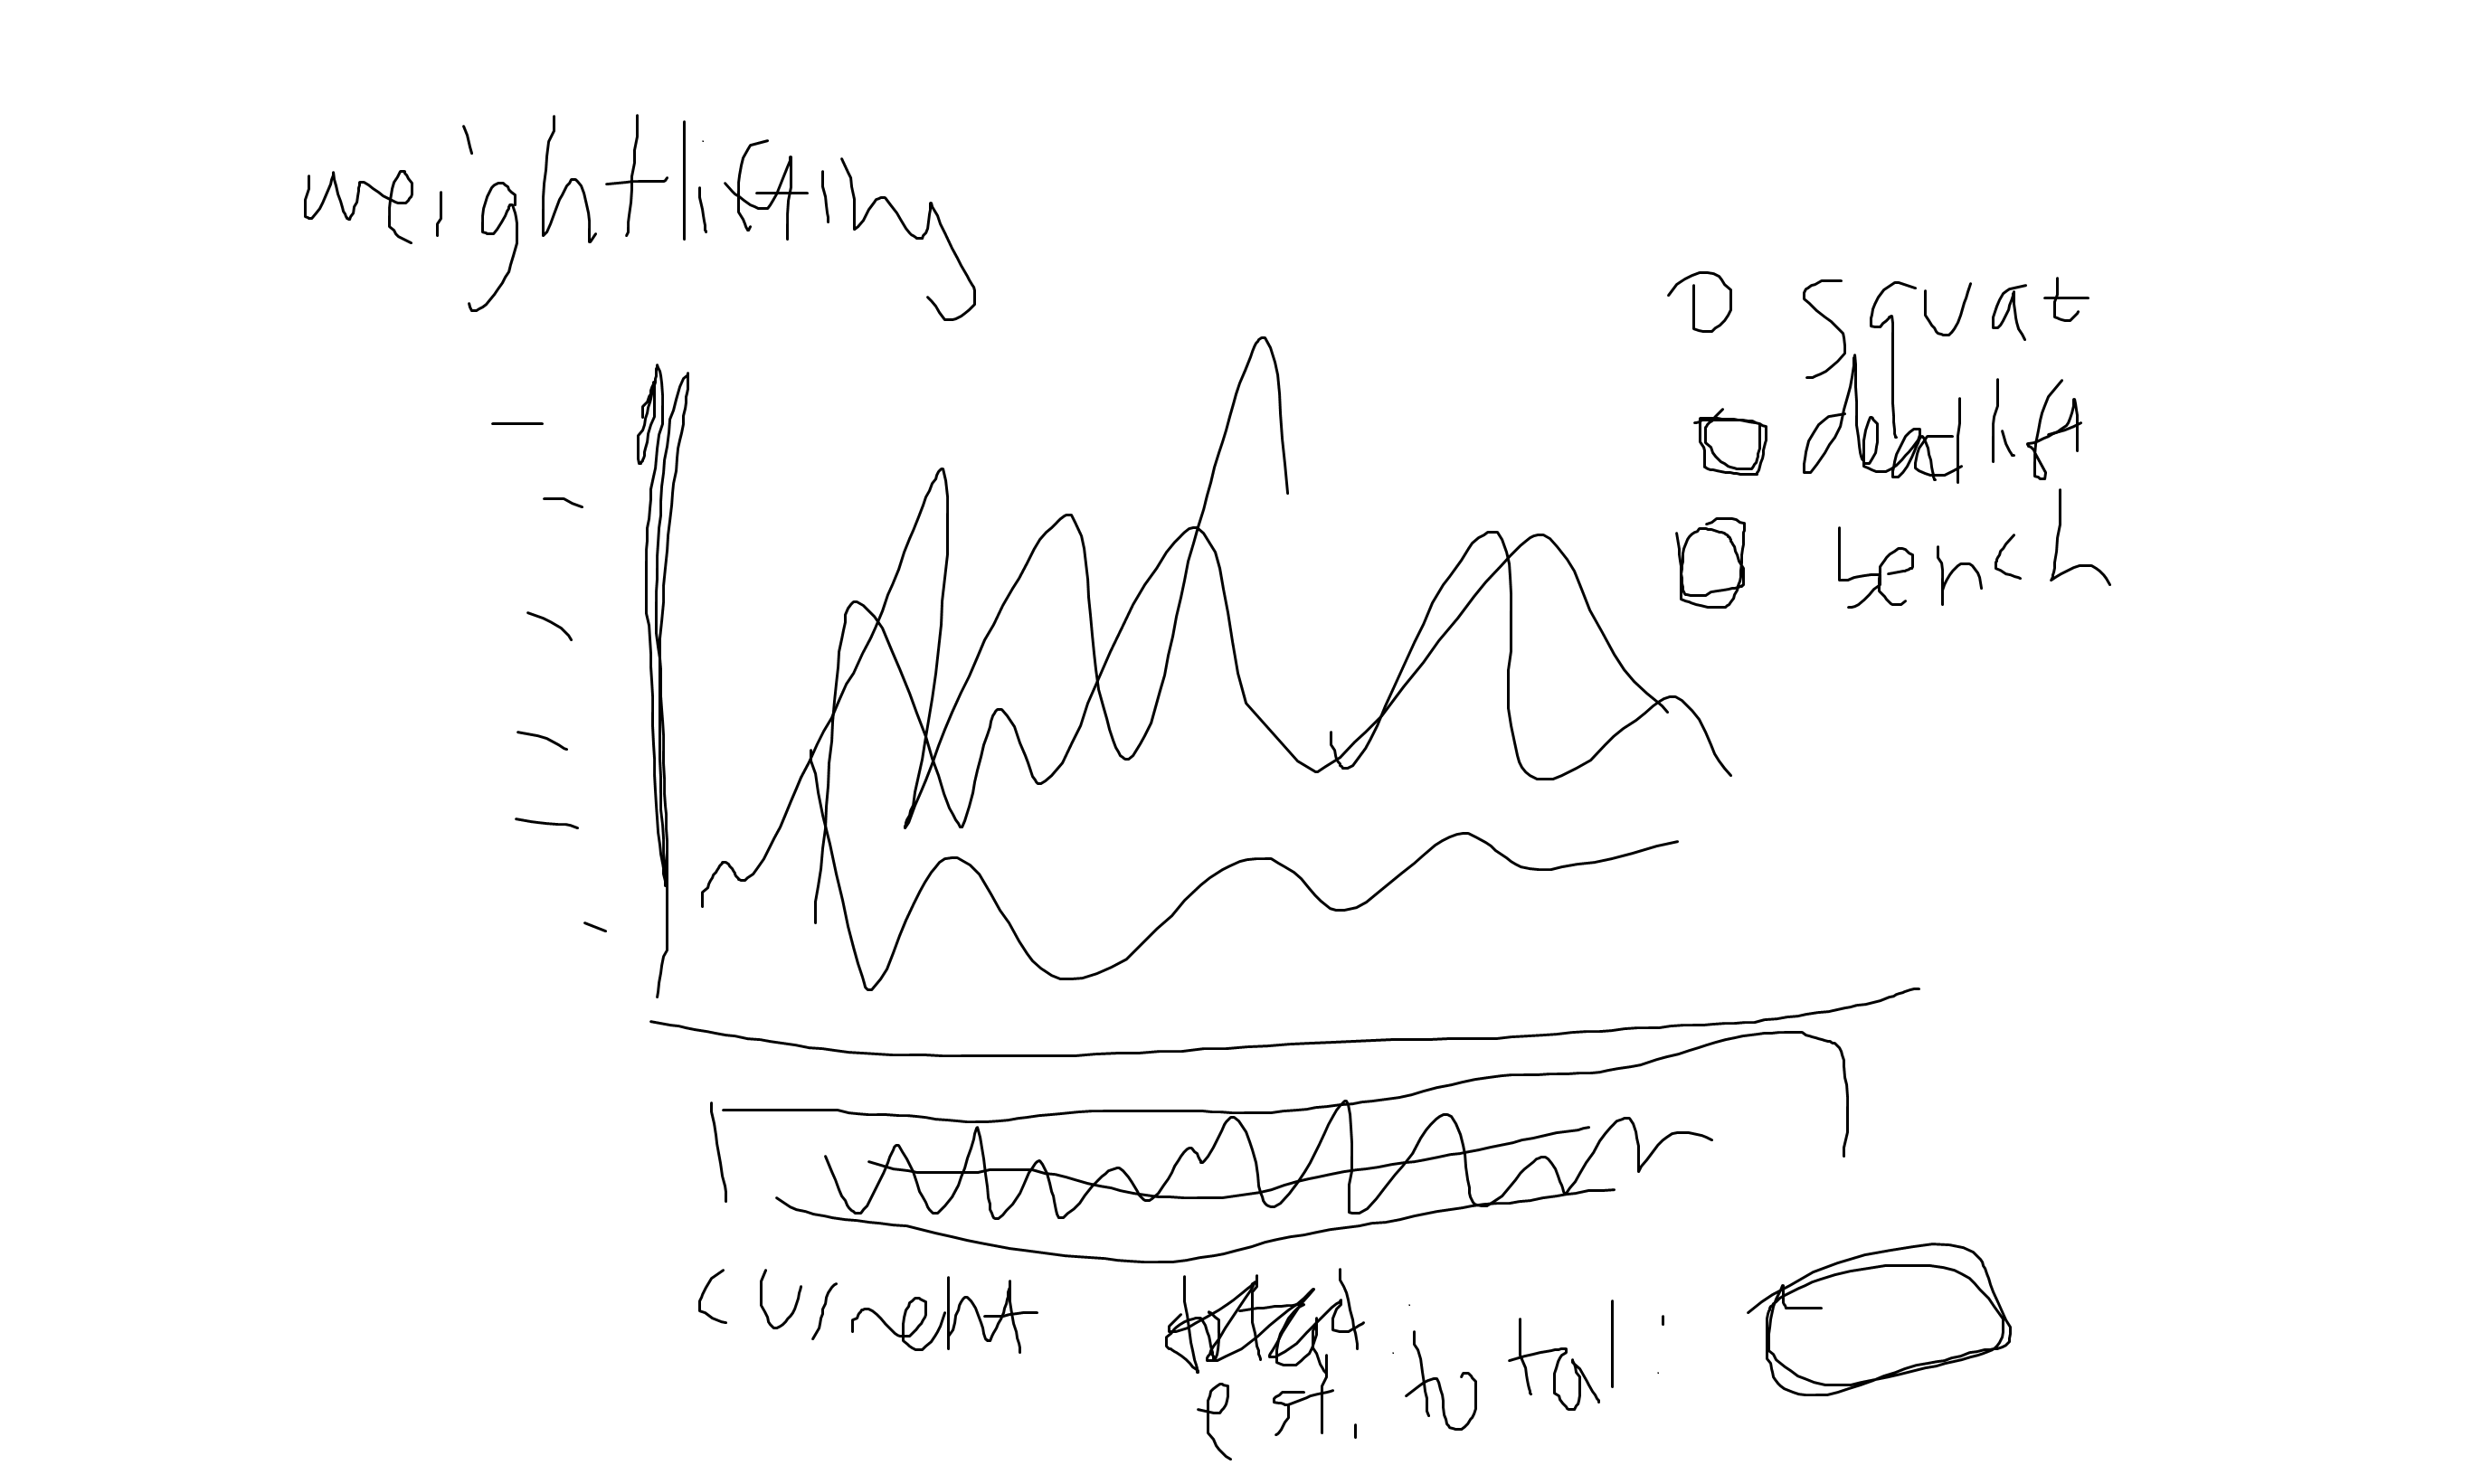 weightlifting
squat
deadlift
bench
current est. total: